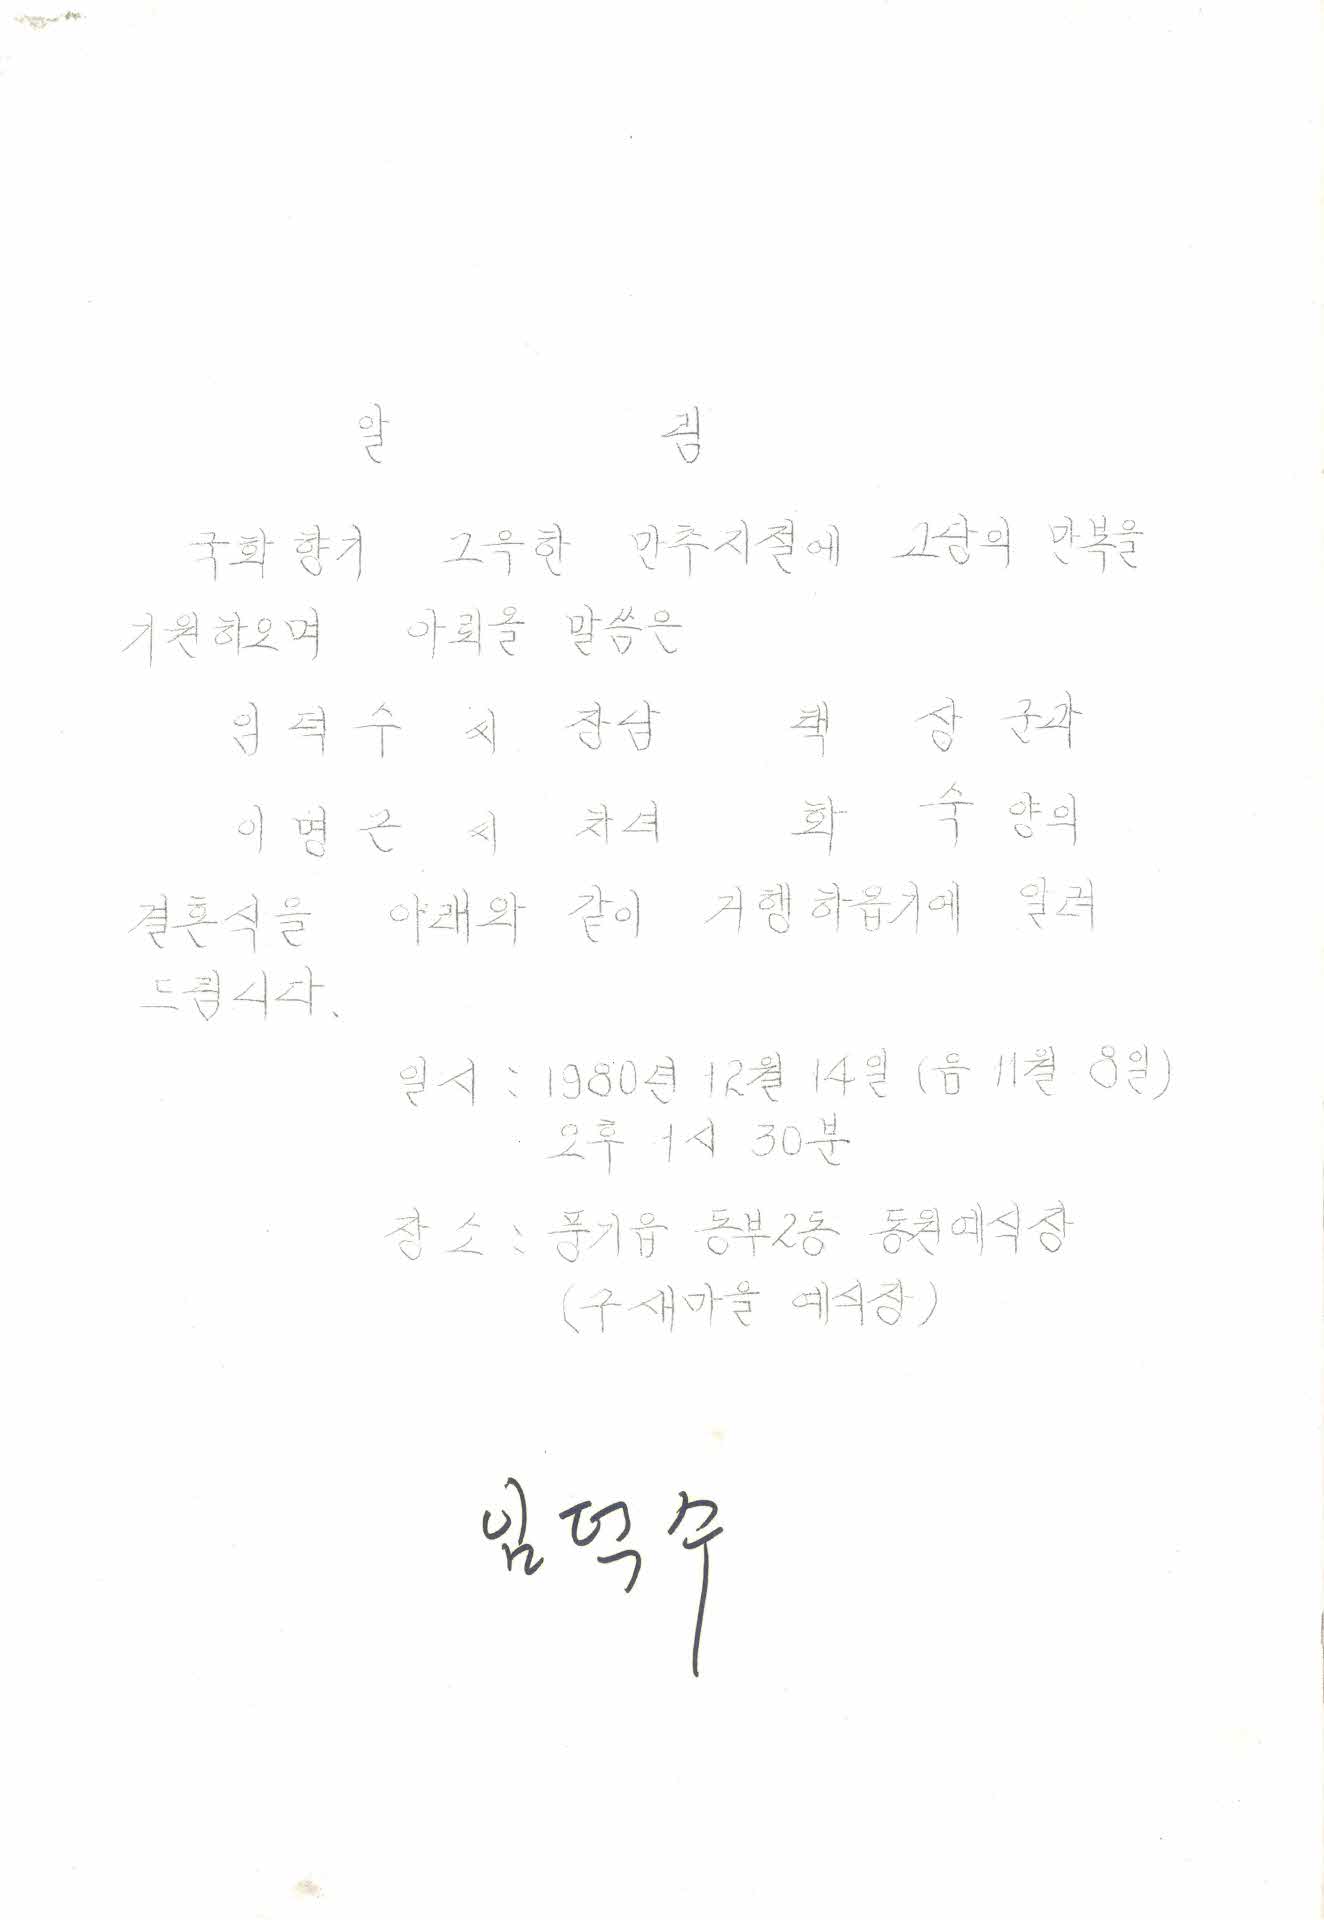 알 림
국화향기 그윽한 만추지절에 고당의 만복을
기원하오며 아뢰올 말씀은
임덕수 씨 장남 책 상 군과
이명근 씨 차녀 화 숙 양의
결혼식을 아래와 같이 거행하옵기에 알려
드립니다.
일시 : 1980년 12월 14일 (음 11월 8일)
오후 1시 30분
장소 : 풍기읍 동부2동 동원예식장
(구 새마을 예식장)
임덕수